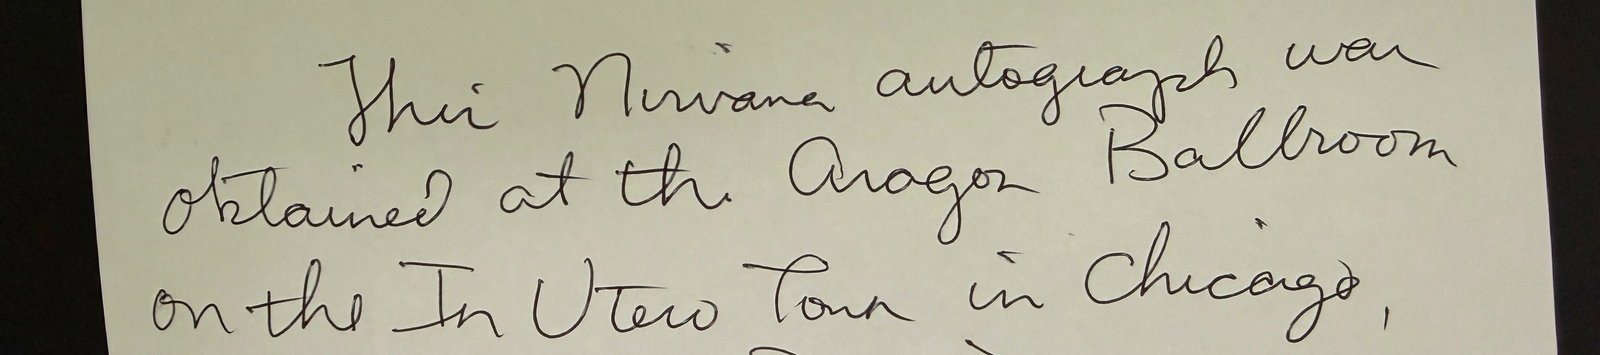 This Nirvana autograph was
obtained at the Aragon Ballroom
on the In Utero Tour in Chicago,